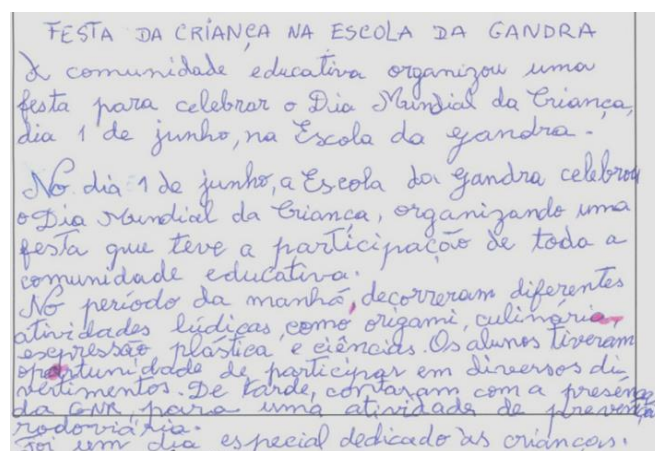 FESTA DA CRIANÇA NA ESCOLA DA GANDRA
A comunidade educativa organizou uma
festa para celebrar o Dia Mundial da Criança,
dia 1 de junho, na Escola da Gandra.
No dia 1 de junho, a Escola da Gandra celebrou
o Dia Mundial da Criança, organizando uma
festa que teve a participação de toda a
comunidade educativa.
No período da manhã, decorreram diferentes
atividades lúdicas, como origami, culinária,
expressão plástica e ciências. Os alunos tiveram
oportunidade de participar em diversos di
vertimentos. De tarde, contaram com a presença
da GNR, para uma atividade de prevenção
rodoviária.
Foi um dia especial dedicado às crianças.